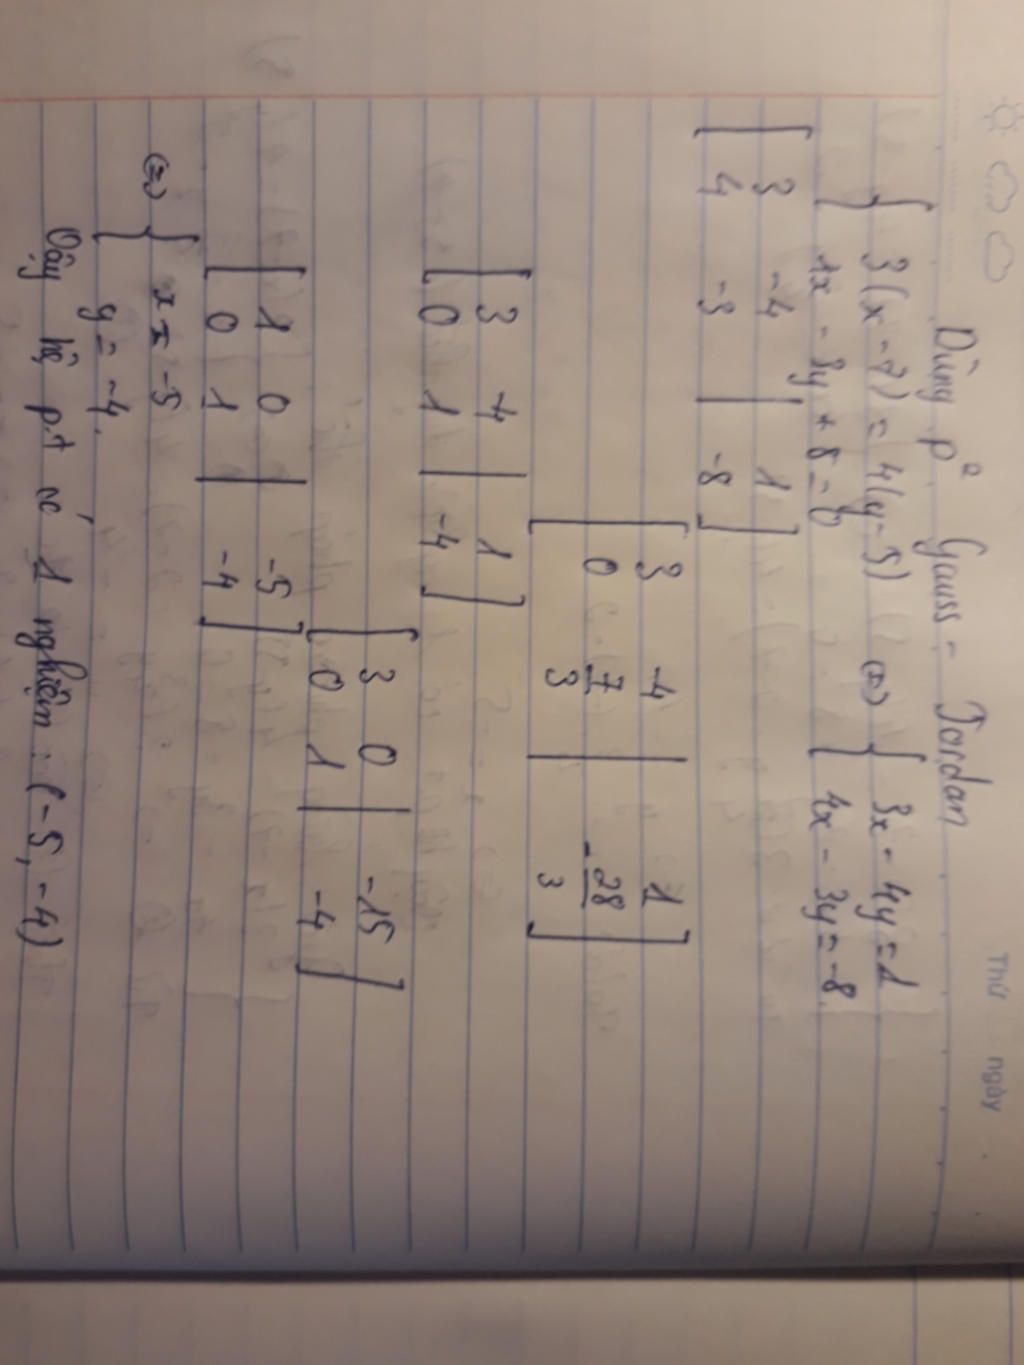 Thứ ngày
Dùng p² Gauss - Jordan
{ 3(x - 7) = 4(y - 5) (=) { 3x - 4y = 1
{ 4x - 3y + 8 = 0 { 4x - 3y = -8
[ 3 -4 | 1 ]
[ 4 -3 | -8 ]
[ 3 -4 | 1 ]
[ 0 7/3 | -28/3 ]
[ 3 -4 | 1 ]
[ 0 1 | -4 ]
[ 3 0 | -15 ]
[ 0 1 | -4 ]
[ 1 0 | -5 ]
[ 0 1 | -4 ]
(=) { x = -5
{ y = -4.
Vậy hệ p.t có 1 nghiệm : (-5, -4)